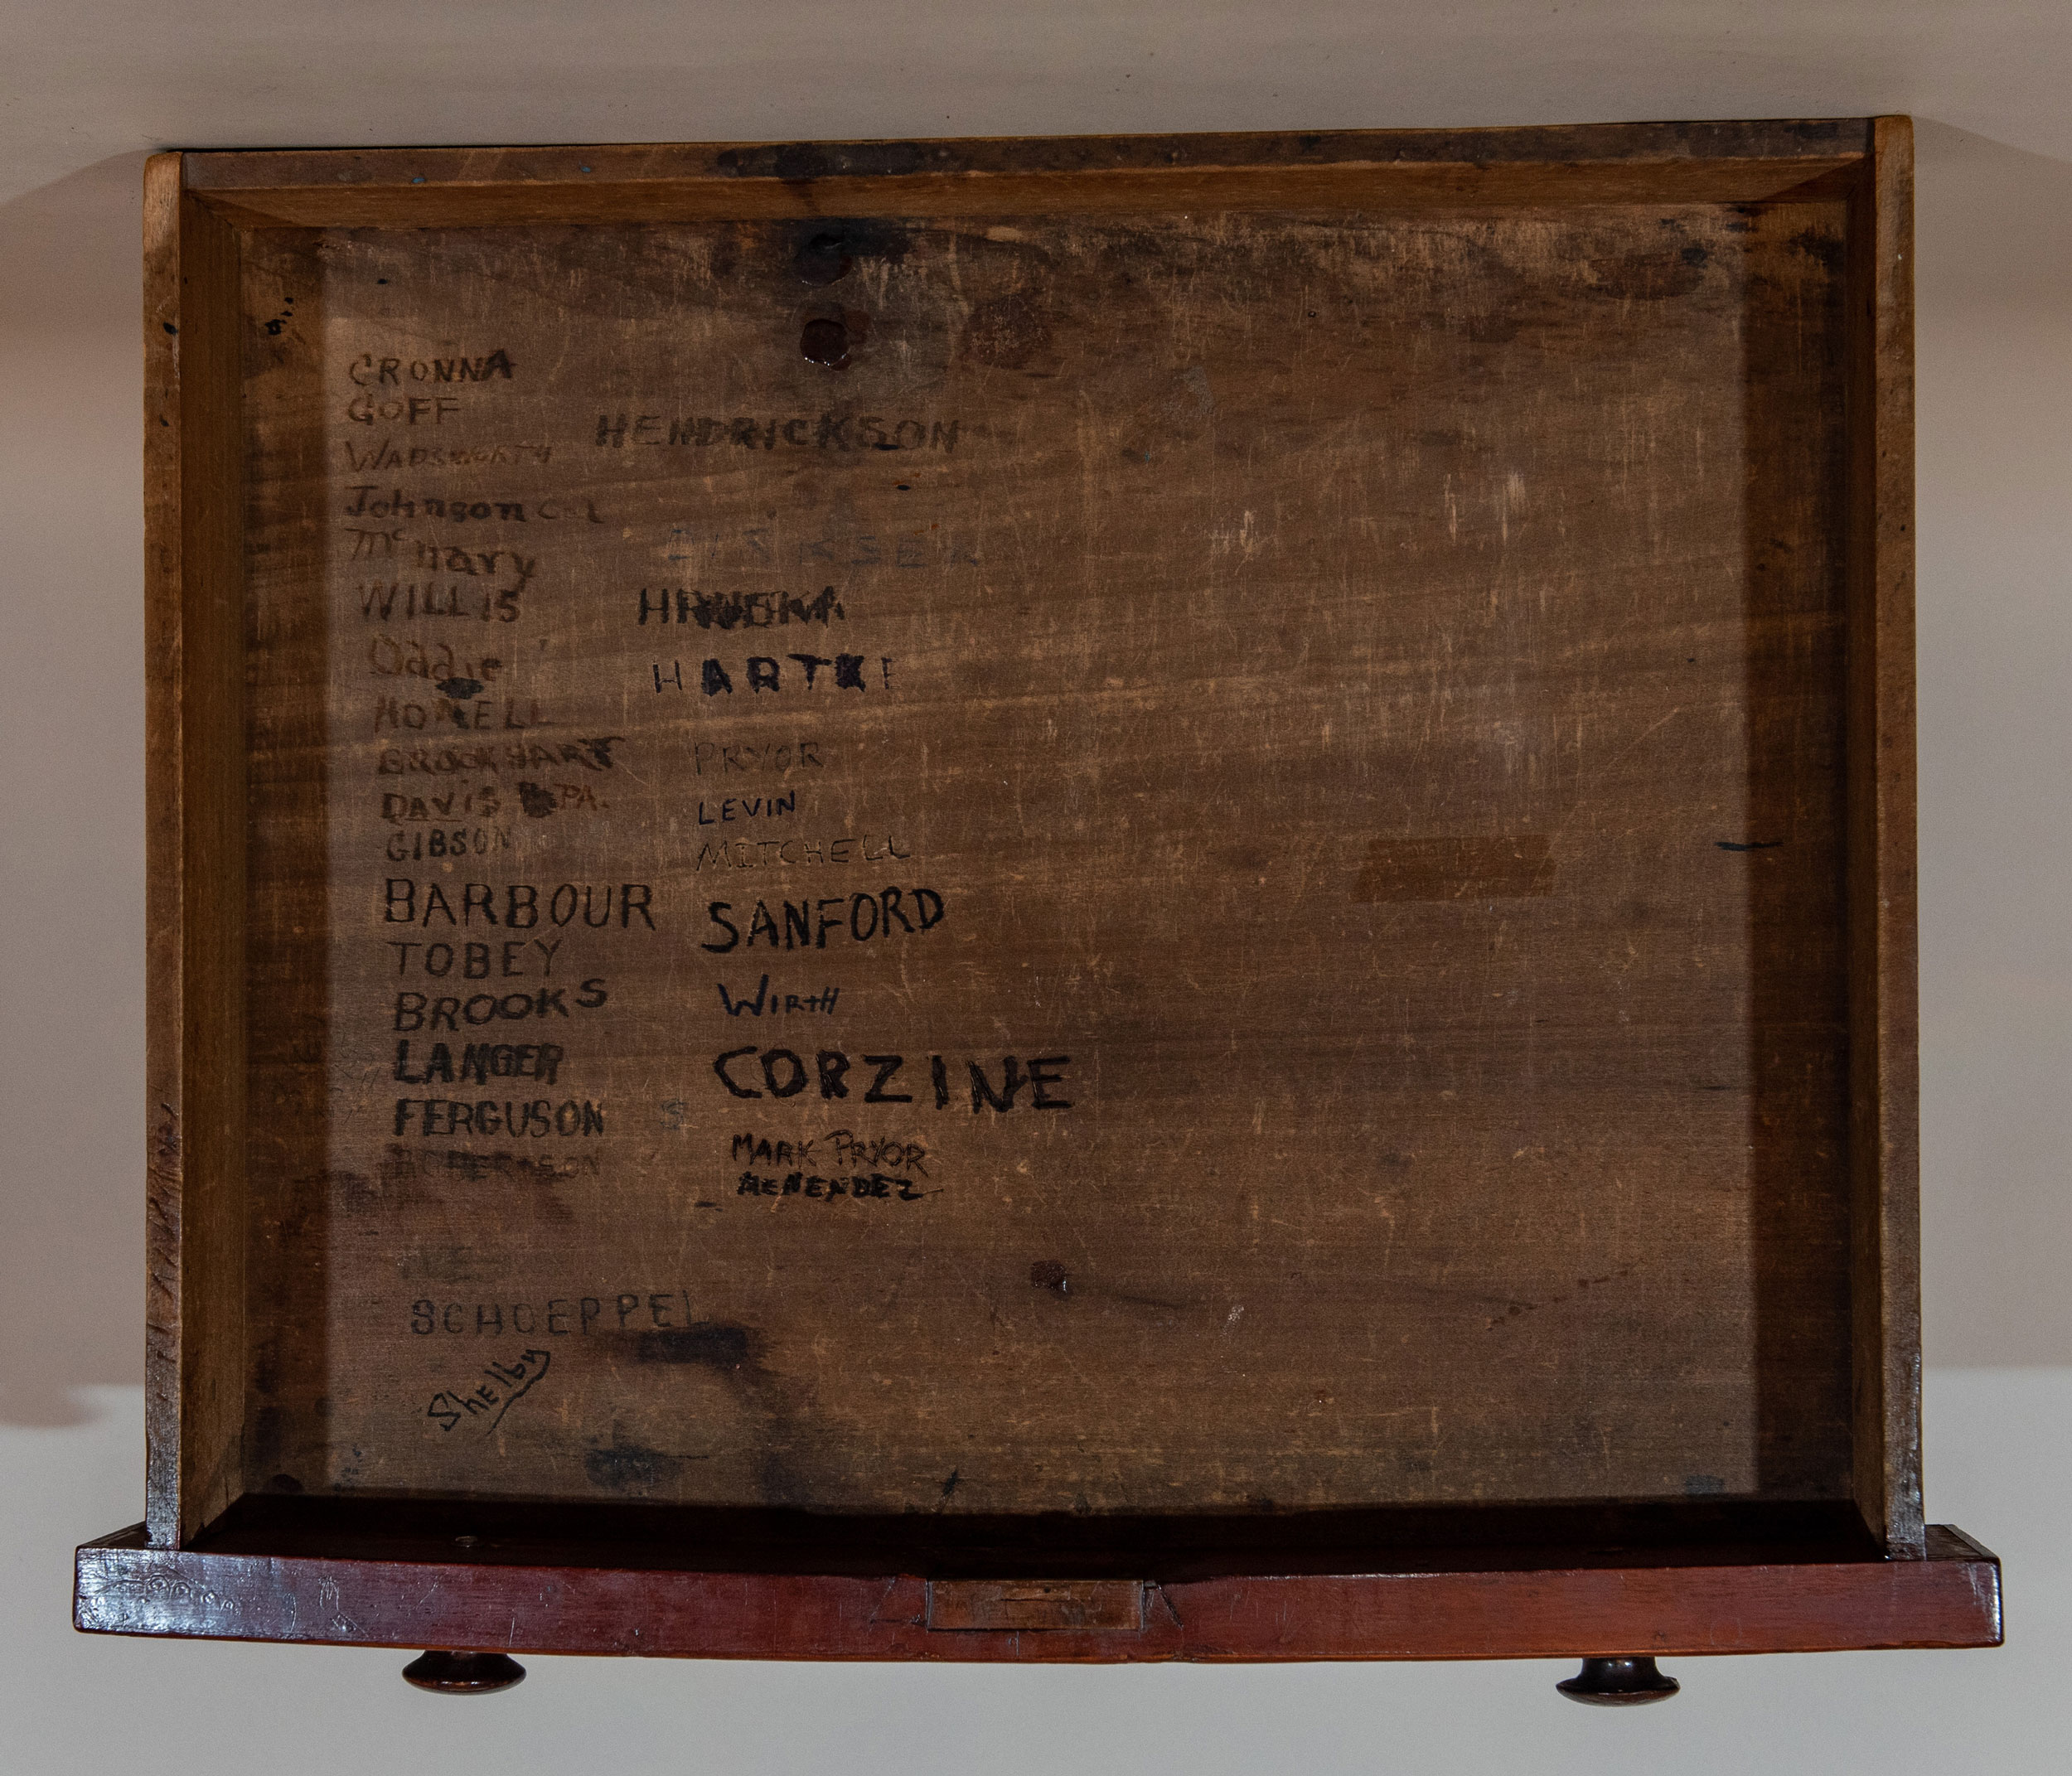 CRONNA
GOFF
WADSWORTH
Johnson
Mcnary
WILLIS
Oddie
HOWELL
BROOKHART
DAVIS PA.
GIBSON
BARBOUR
TOBEY
BROOKS
LANGER
FERGUSON
ROBERTSON
SCHOEPPEL
Shelby
HENDRICKSON
DIRKSEN
HRUSKA
HARTKE
PRYOR
LEVIN
MITCHELL
SANFORD
WIRTH
CORZINE
MARK PRYOR
MENENDEZ